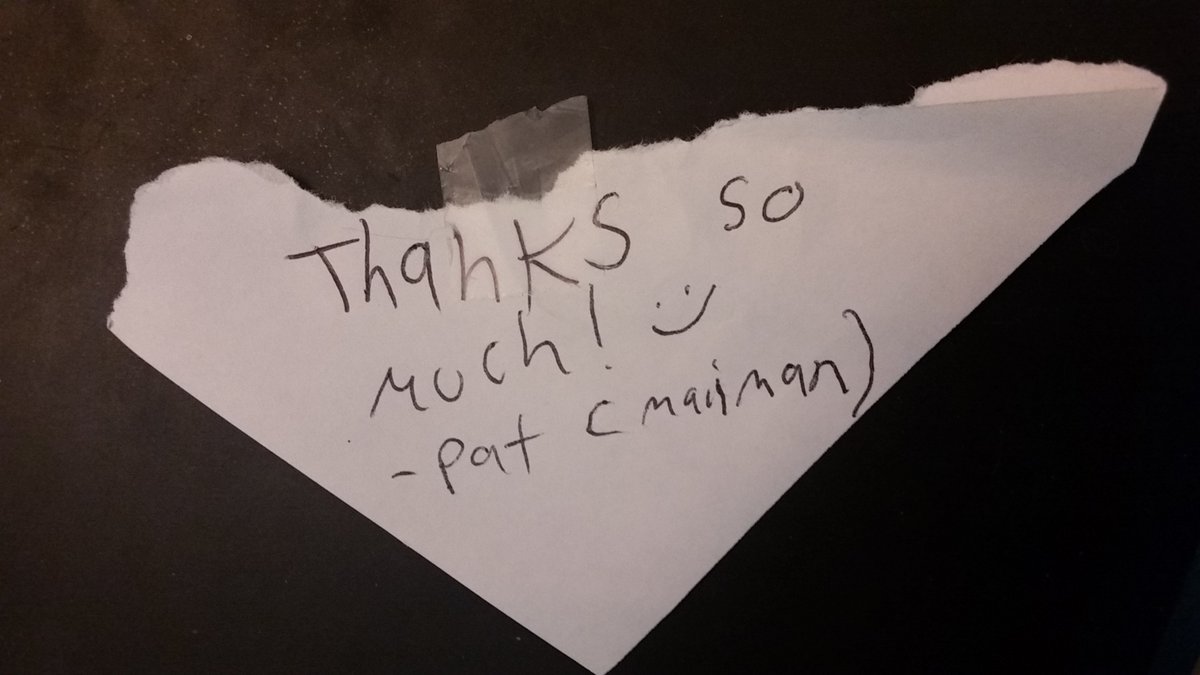 Thanks so
much! :)
-pat (mailman)